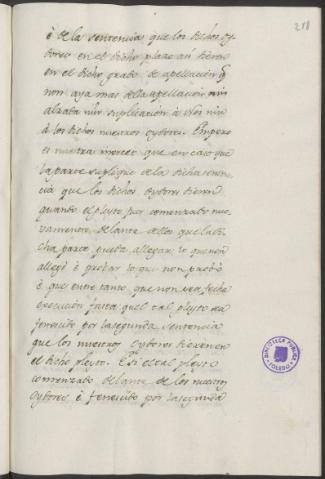 218
é de la sentencia, que los dichos oy-
dores en el dicho plazo así dieron
en el dicho grado de apellación q̃
non aya mas della apellación nin
alzada nin suplicación à Nos nin
à los dichos nuestros oydores. Empero
es nuestra merced que en caso que
la parte suplique de la dicha senten-
cia que los dichos oydores dieron
quando el pleyto fue comenzado nue-
vamente delante dellos que la di-
cha parte pueda allegar lo que non
allegó é probar lo que non probó
é que entre tanto que non sea fecha
execución fasta quel tal pleyto sea
fenescido por la segunda sentencia
que los nuestros oydores dieren en
el dicho pleyto. E si el tal pleyto
comenzado delante de los nuestros
oydores é fenescido por la segunda
BIBLIOTECA PUBLICA
TOLEDO